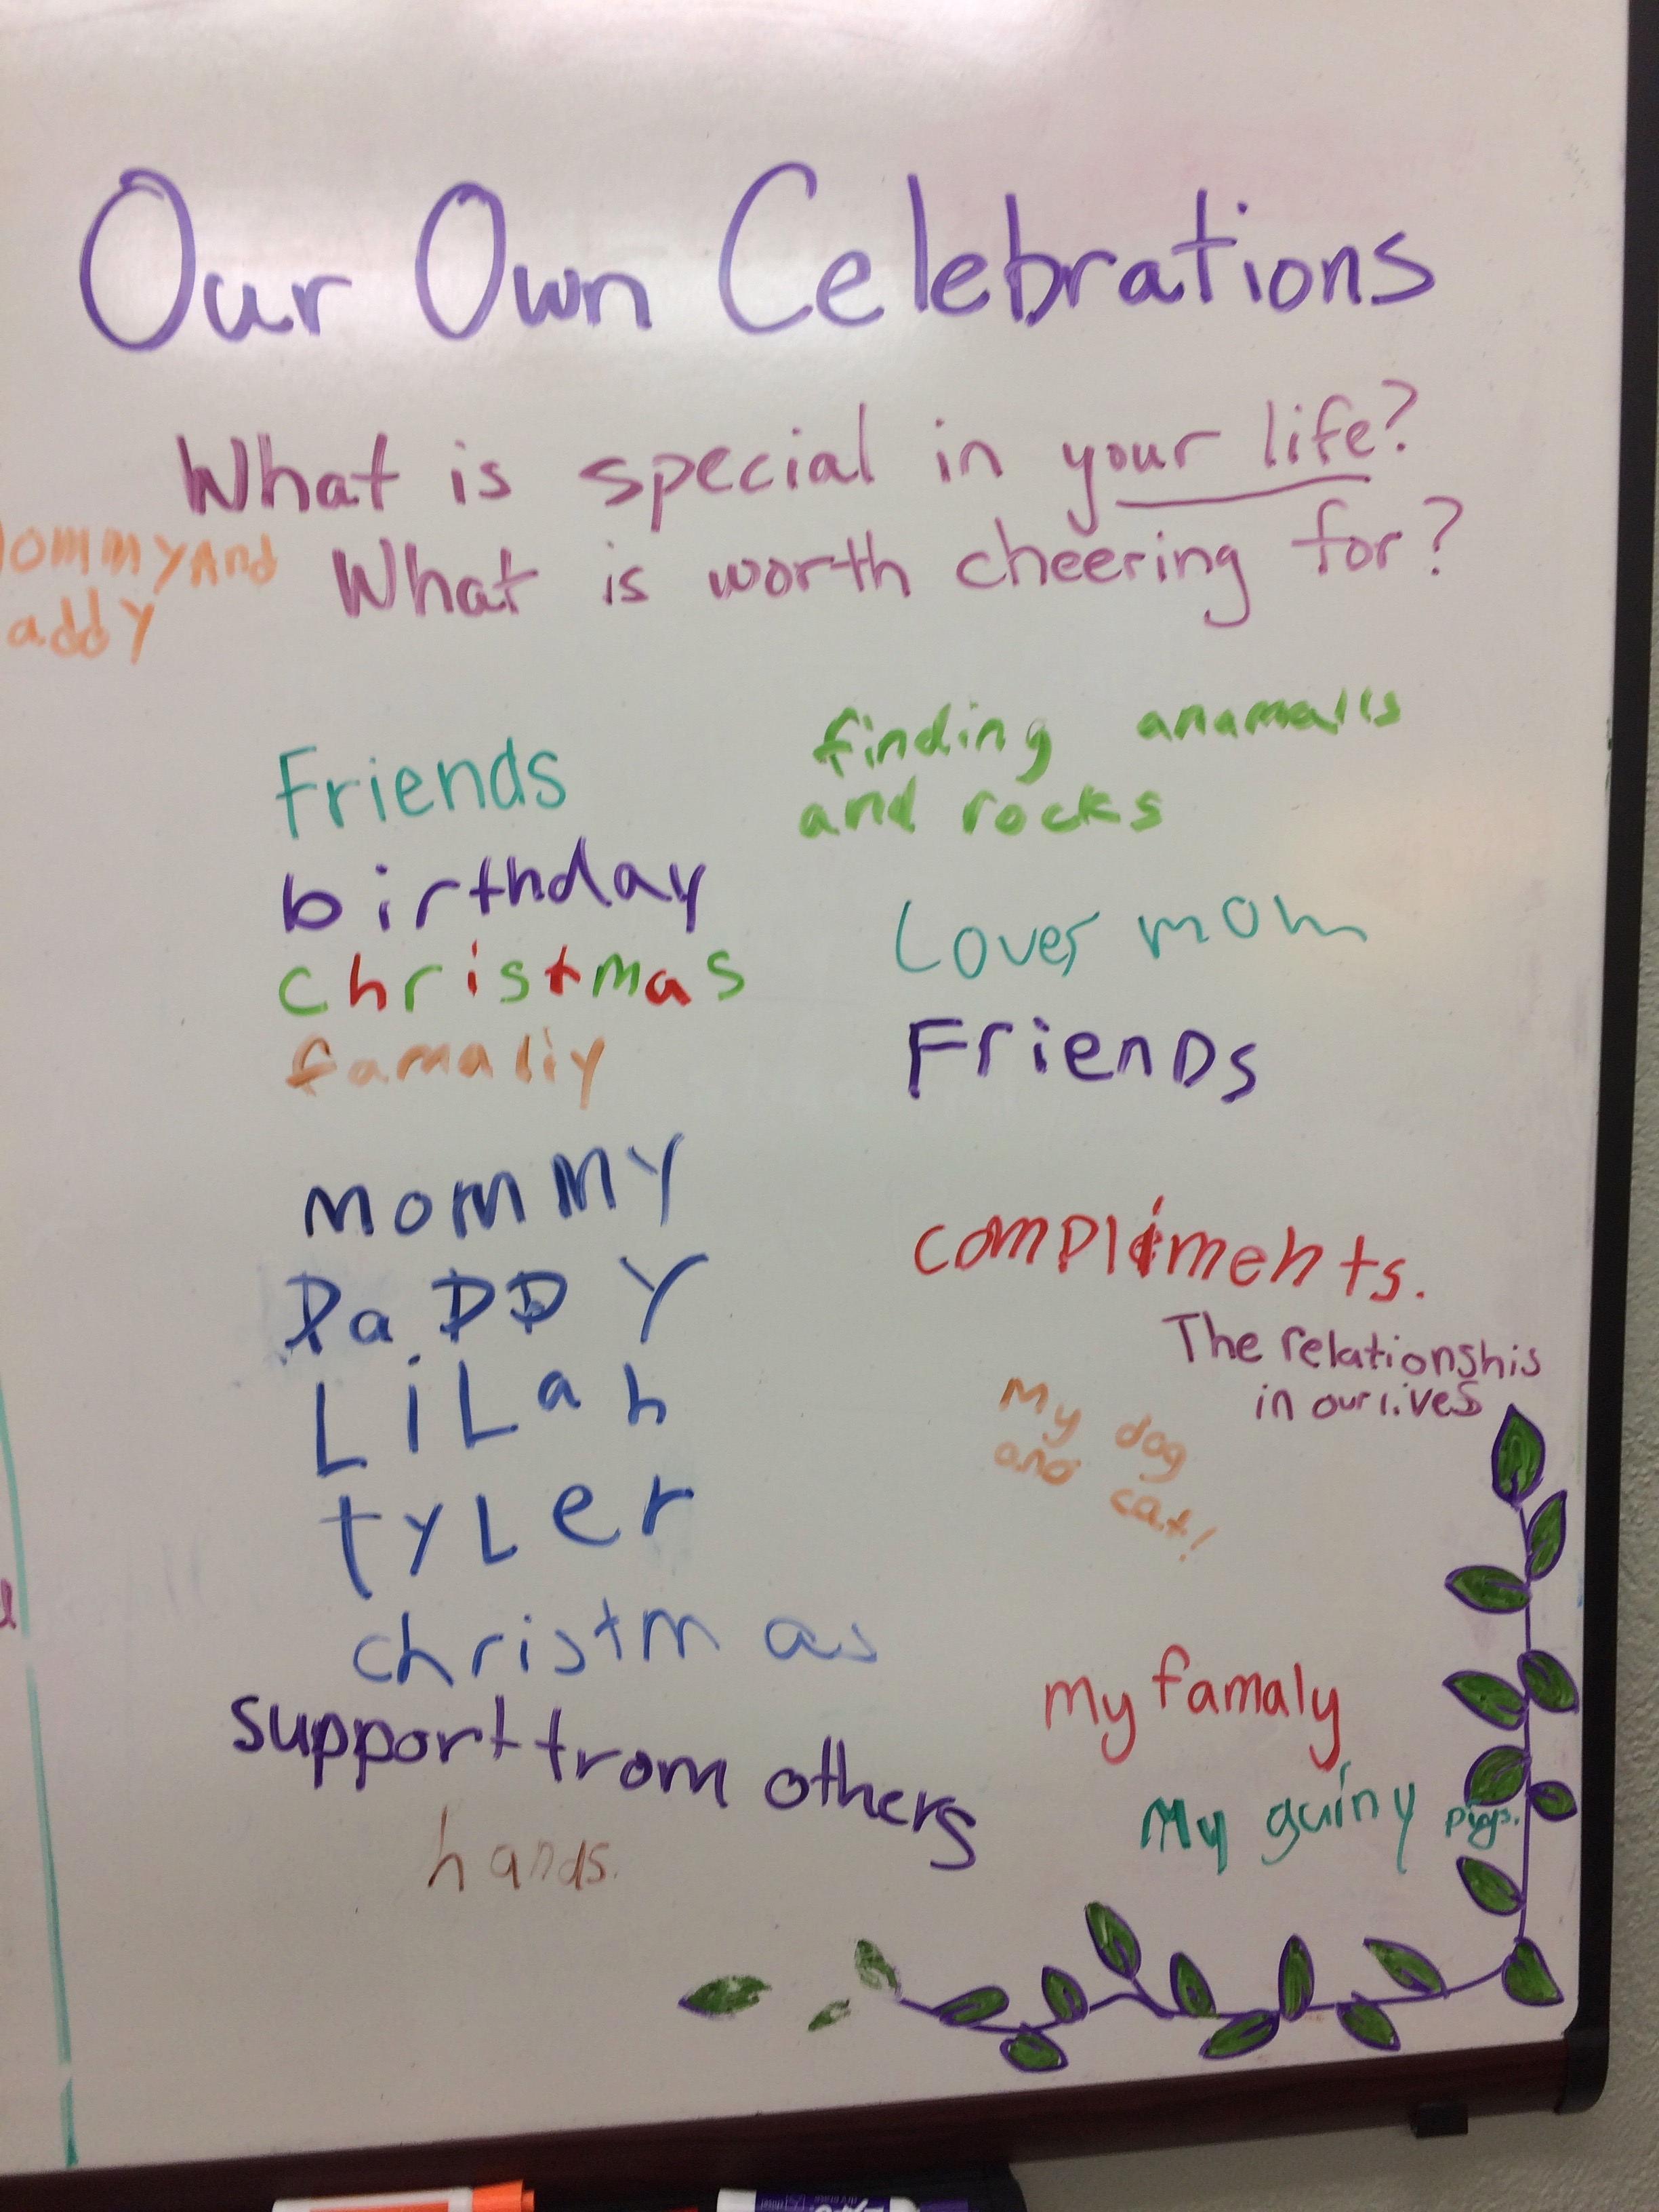 Our Own Celebrations
What is special in your life?
What is worth cheering for?
ommy And
addy
Friends
birthday
christmas
famaliy
finding anamalls
and rocks
Loves mom
FrienDs
moMMY
DaDDY
LiLah
tyLer
christmas
support from others
hands.
compliments.
The relationshis
in our lives
My dog
and cat!
my famaly
My guiny pigs.